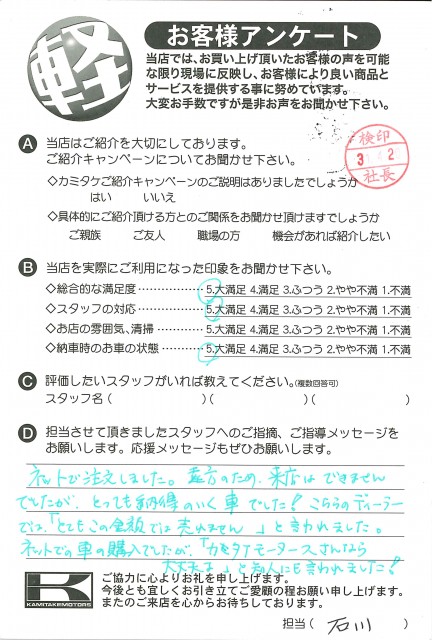 軽
お客様アンケート
当店では、お買い上げ頂いたお客様の声を可能
な限り現場に反映し、お客様により良い商品と
サービスを提供する事に努めています。
大変お手数ですが是非お声をお聞かせ下さい。
検印
社長
A 当店はご紹介を大切にしております。
ご紹介キャンペーンについてお聞かせ下さい。
◇カミタケご紹介キャンペーンのご説明はありましたでしょうか
はい いいえ
◇具体的にご紹介頂ける方とのご関係をお聞かせ頂けますでしょうか
ご親族 ご友人 職場の方 機会があれば紹介したい
B 当店を実際にご利用になった印象をお聞かせ下さい。
◇総合的な満足度 5.大満足 4.満足 3.ふつう 2.やや不満 1.不満
◇スタッフの対応 5.大満足 4.満足 3.ふつう 2.やや不満 1.不満
◇お店の雰囲気、清掃 5.大満足 4.満足 3.ふつう 2.やや不満 1.不満
◇納車時のお車の状態 5.大満足 4.満足 3.ふつう 2.やや不満 1.不満
C 評価したいスタッフがいれば教えてください。(複数回答可)
スタッフ名( )( )( )
D 担当させて頂きましたスタッフへのご指摘、ご指導メッセージを
お願いします。応援メッセージもぜひお願いします。
ネットで注文しました。遠方のため、来店はできません
でしたが、とっても納得のいく車でした!こちらのディーラー
では、「とてもこの金額では売れません」と言われました。
ネットでの車の購入でしたが、「カミタケモータースさんなら
大丈夫よ」と知人にも言われました!
K
KAMITAKEMOTORS
ご協力に心よりお礼を申し上げます。
今後とも宜しくお引き立てご愛顧の程お願い申し上げます。
またのご来店を心からお待ちしております。
担当(石川)